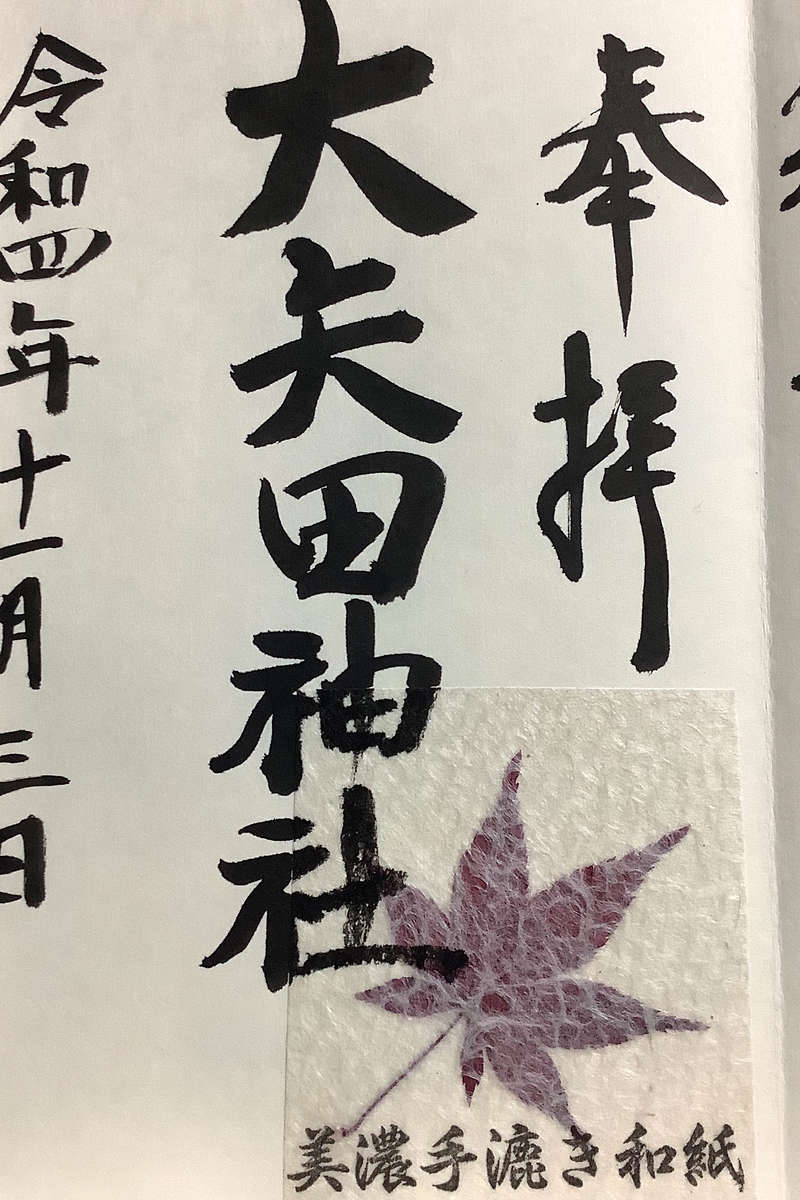 奉拝
大矢田神社
令和四年十一月三日
美濃手漉き和紙